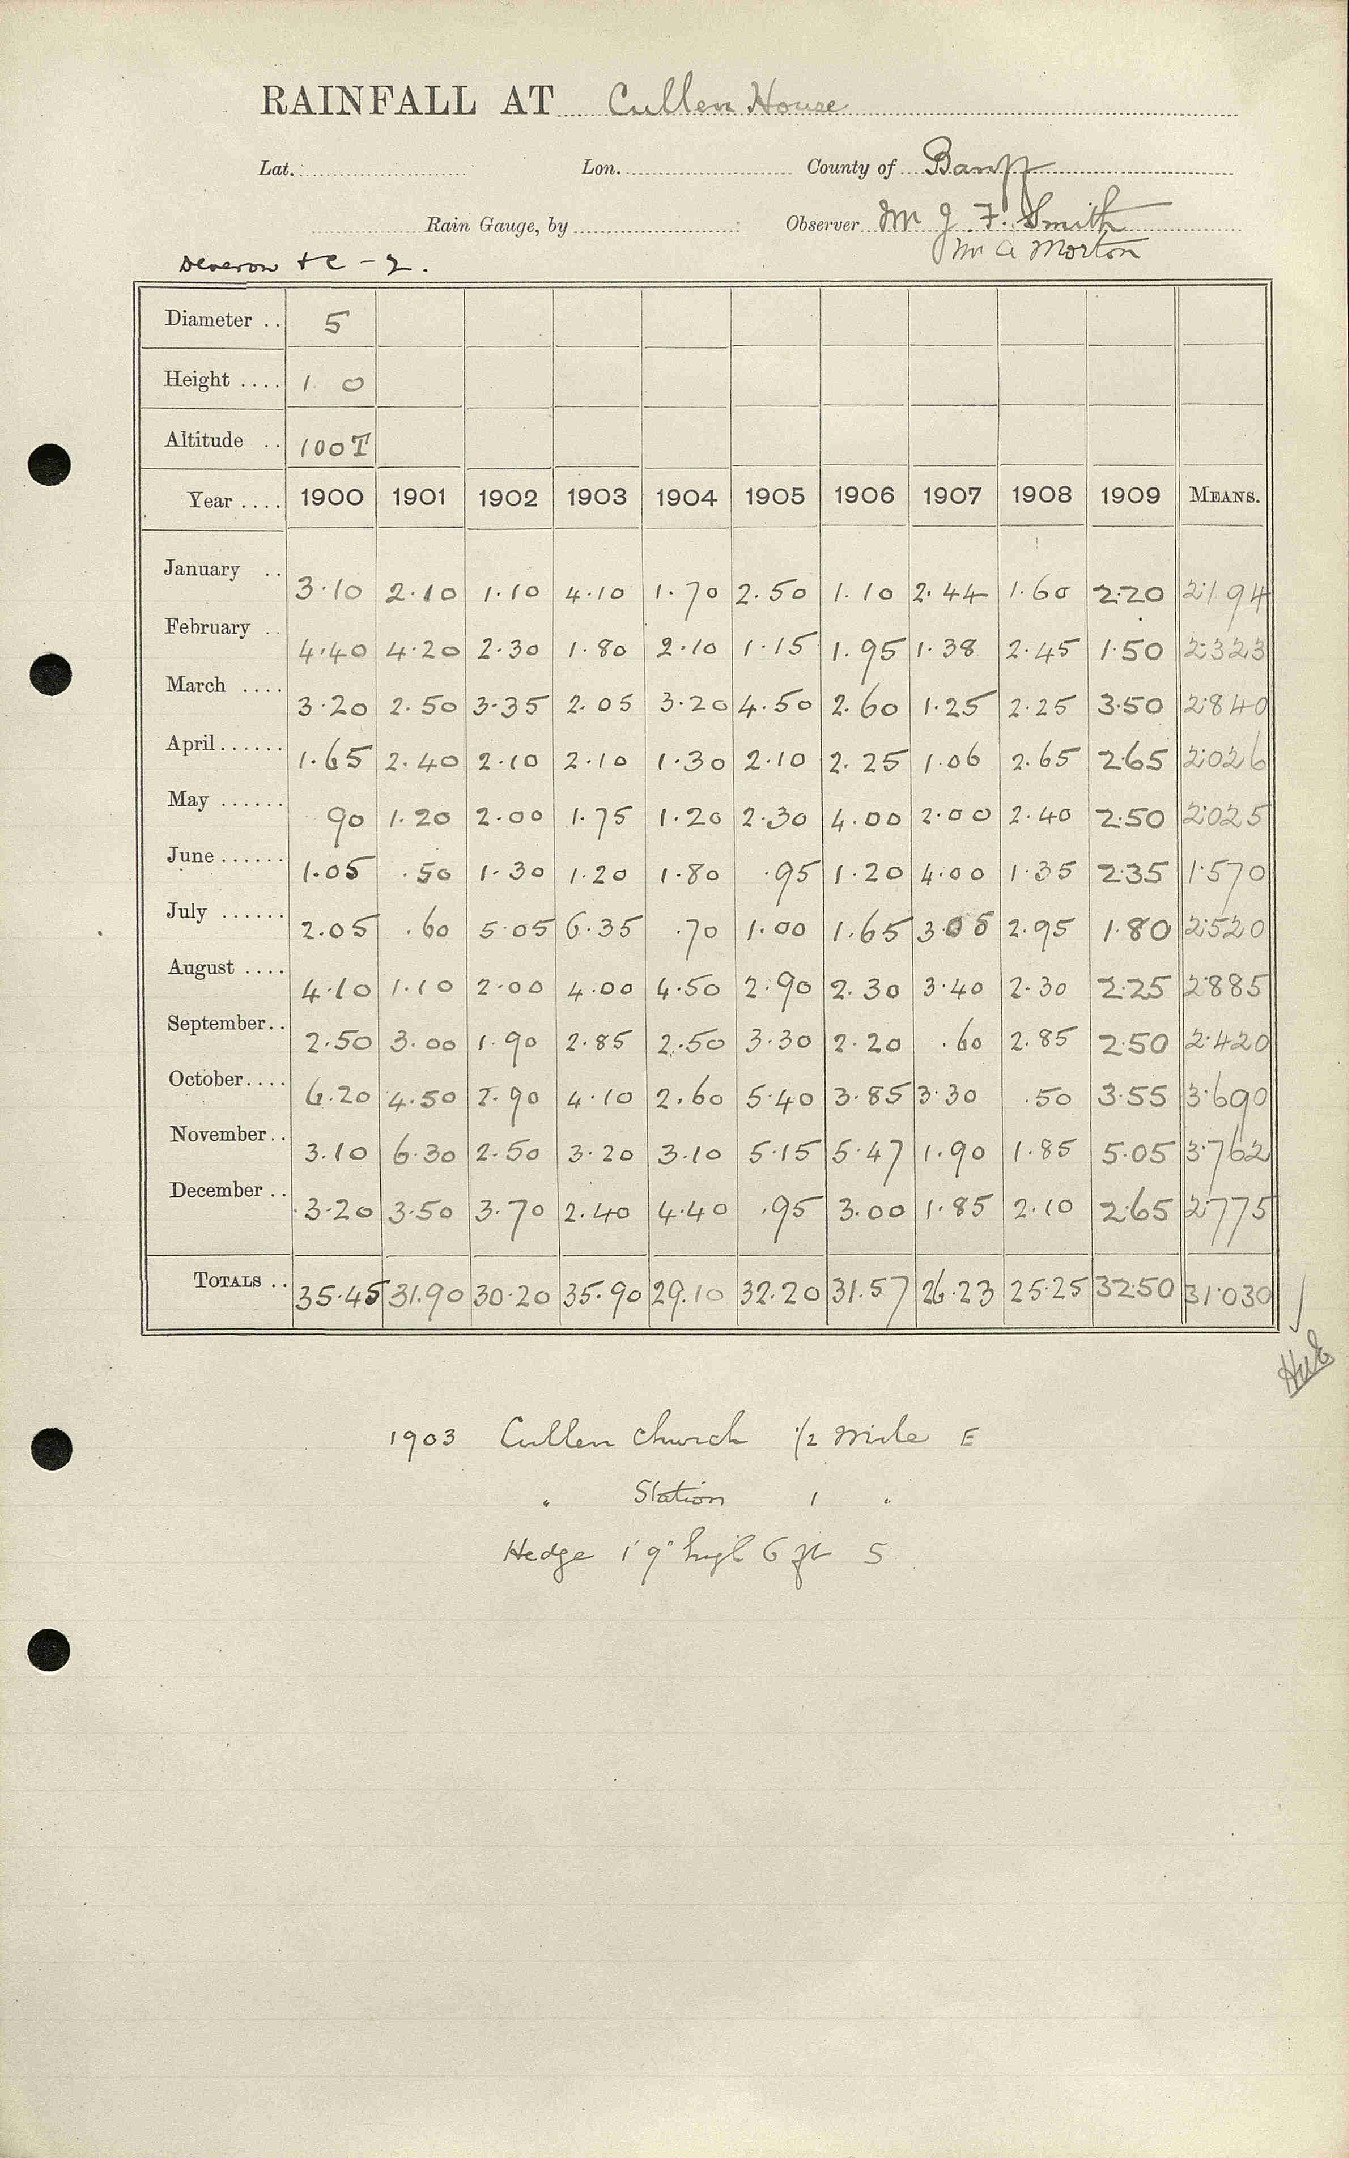 RAINFALL AT Cullen House
Lat. Lon. County of Banff
Rain Gauge, by Observer Mr J. F. Smith
Mr A Morton
Deveron &c - 2.
Diameter .. 5
Height .... 1 0
Altitude .. 100T
Year .... 1900 1901 1902 1903 1904 1905 1906 1907 1908 1909 MEANS.
January .. 3.10 2.10 1.10 4.10 1.70 2.50 1.10 2.44 1.60 2.20 2.194
February .. 4.40 4.20 2.30 1.80 2.10 1.15 1.95 1.38 2.45 1.50 2.323
March .... 3.20 2.50 3.35 2.05 3.20 4.50 2.60 1.25 2.25 3.50 2.840
April...... 1.65 2.40 2.10 2.10 1.30 2.10 2.25 1.06 2.65 2.65 2.026
May ...... 90 1.20 2.00 1.75 1.20 2.30 4.00 2.00 2.40 2.50 2.025
June ...... 1.05 .50 1.30 1.20 1.80 .95 1.20 4.00 1.35 2.35 1.570
July ...... 2.05 .60 5.05 6.35 .70 1.00 1.65 3.05 2.95 1.80 2.520
August .... 4.10 1.10 2.00 4.00 4.50 2.90 2.30 3.40 2.30 2.25 2.885
September.. 2.50 3.00 1.90 2.85 2.50 3.30 2.20 .60 2.85 2.50 2.420
October.... 6.20 4.50 2.90 4.10 2.60 5.40 3.85 3.30 .50 3.55 3.690
November.. 3.10 6.30 2.50 3.20 3.10 5.15 5.47 1.90 1.85 5.05 3.762
December .. 3.20 3.50 3.70 2.40 4.40 .95 3.00 1.85 2.10 2.65 2.775
TOTALS .. 35.45 31.90 30.20 35.90 29.10 32.20 31.57 26.23 25.25 32.50 31.030
1903 Cullen church 1/2 mile E
" Station 1 "
Hedge 1'9" high 6 ft S